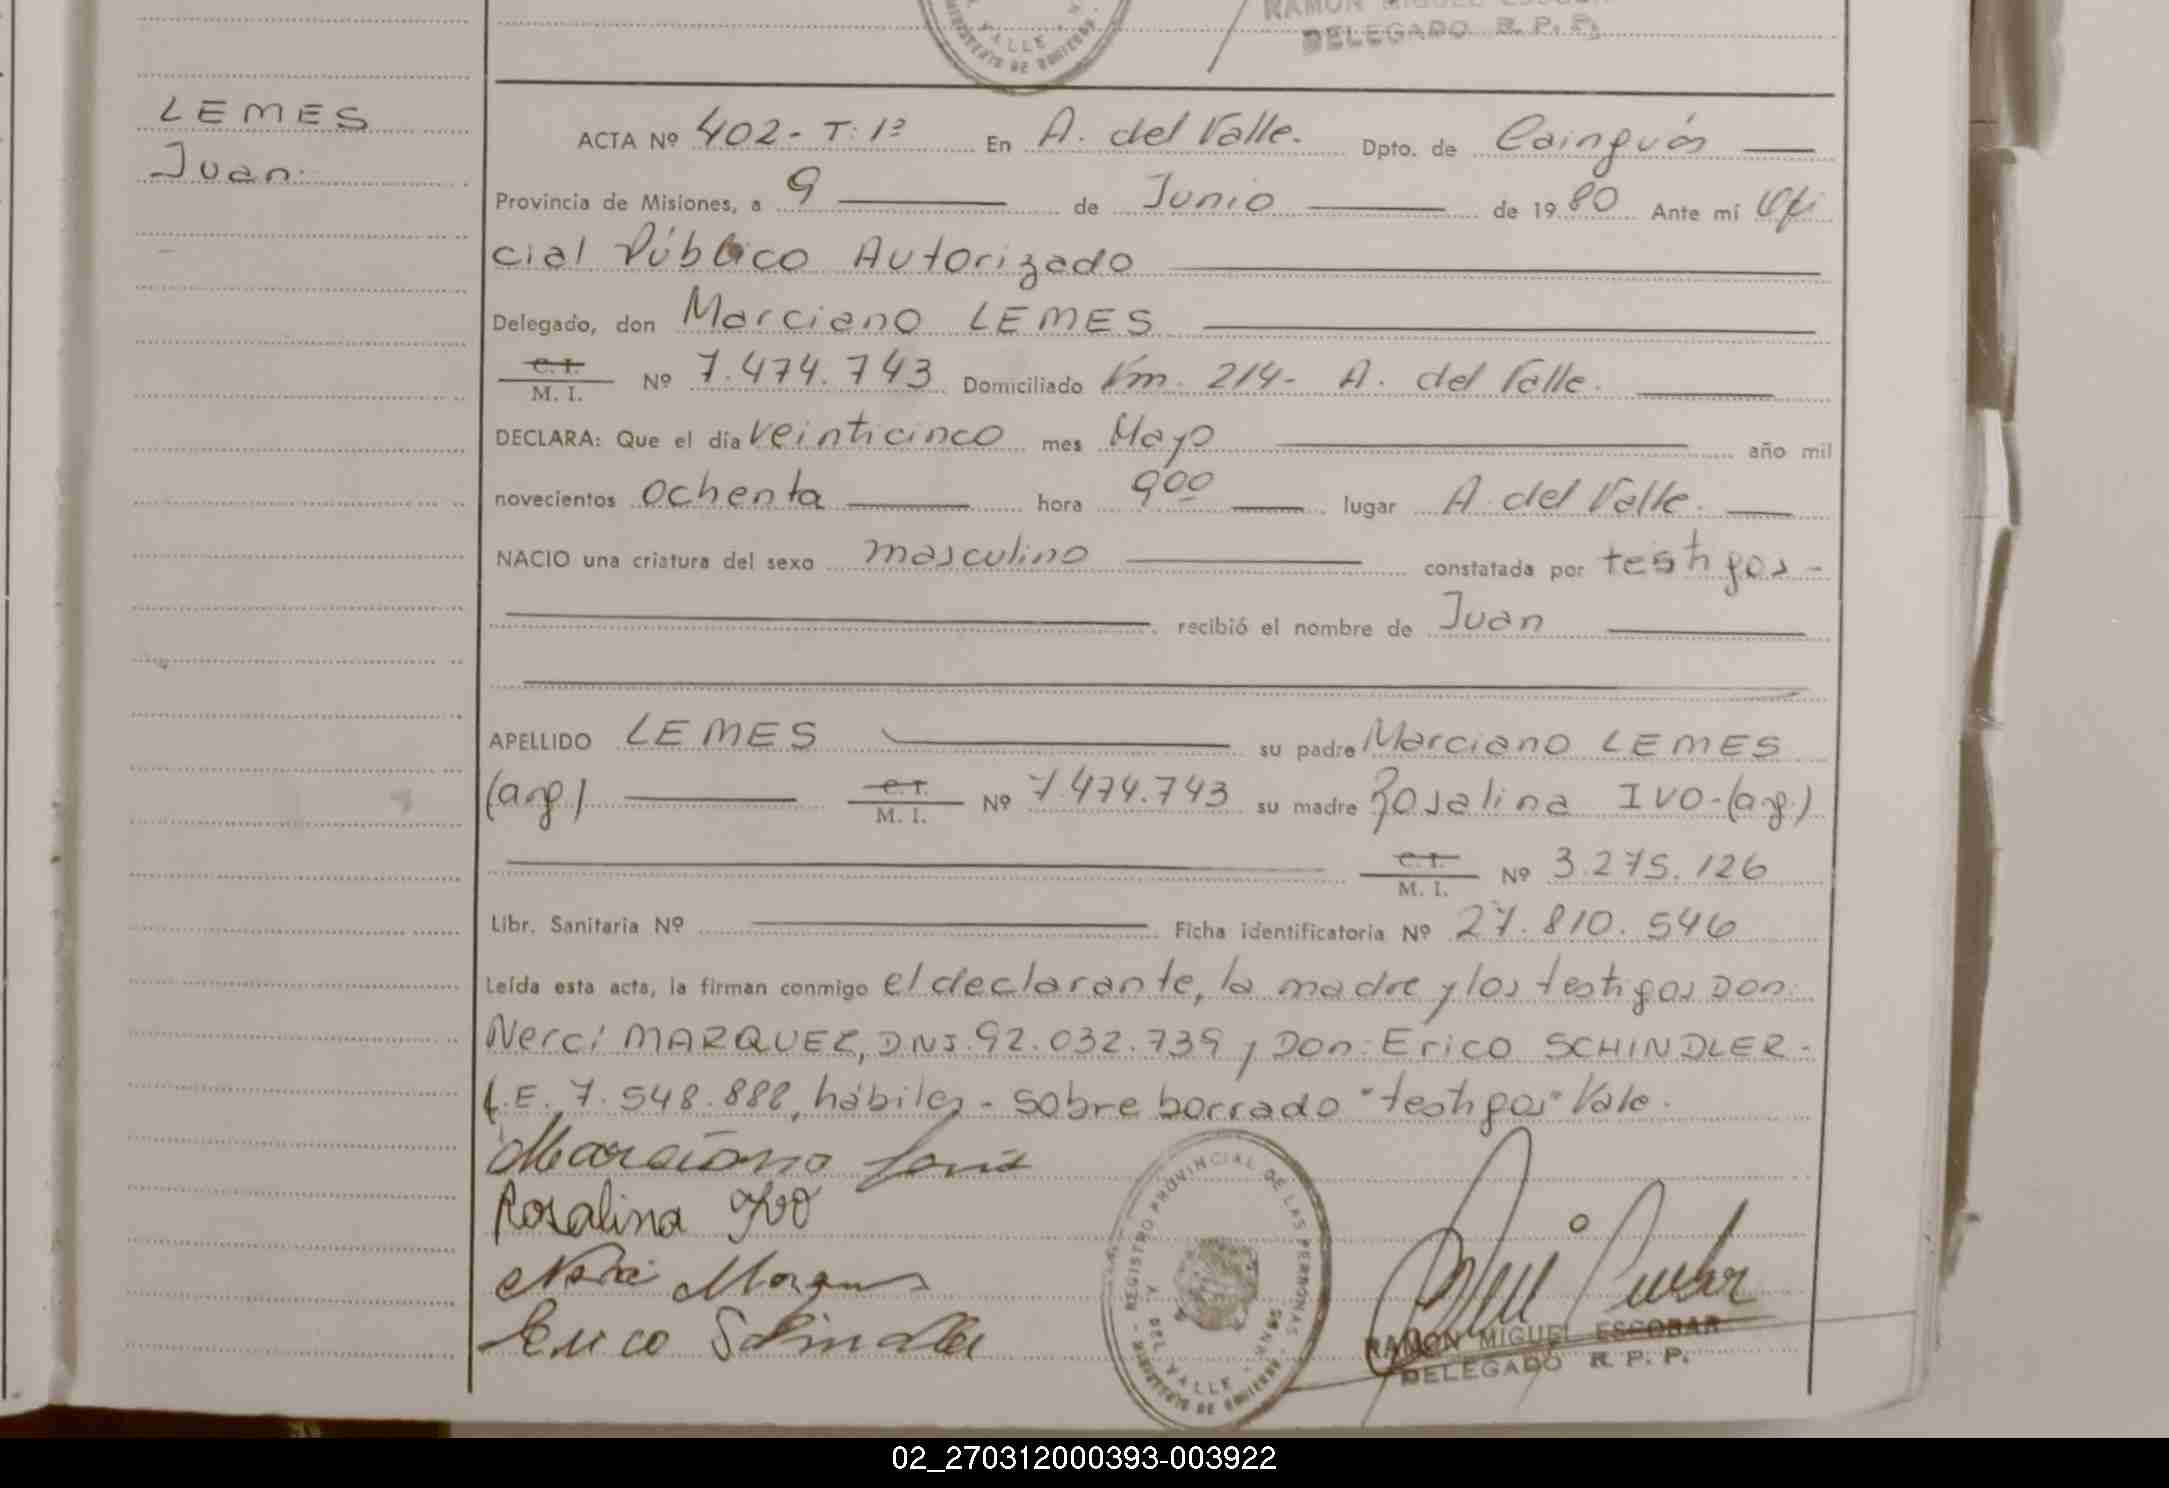 VALLE
MINISTERIO DE GOBIERNO
RAMON MIGUEL ESCOBAR
DELEGADO R. P. P.
LEMES
Juan.
ACTA Nº 402- T: 1º En A. del Valle. Dpto. de Cainguás
Provincia de Misiones, a 9 de Junio de 1980 Ante mí Ofi
cial Público Autorizado
Delegado, don Marciano LEMES
C. I.
M. I. Nº 7.474.743 Domiciliado Km. 214- A. del Valle.
DECLARA: Que el día veinticinco mes Mayo año mil
novecientos ochenta hora 9oo lugar A. del Valle.
NACIO una criatura del sexo masculino constatada por testigos-
recibió el nombre de Juan
APELLIDO LEMES su padre Marciano LEMES
(arg) C. I.
M. I. Nº 7.474.743 su madre Rosalina IVO-(arg.)
C. I.
M. I. Nº 3.275.126
Libr. Sanitaria Nº Ficha identificatoria Nº 27.810.546
Leída esta acta, la firman conmigo el declarante, la madre y los testigos Don:
Nerci MARQUEZ, DNI.92.032.739 y Don: Erico SCHINDLER-
L.E. 7.548.888, hábiles- sobre borrado "testigos" Vale.
Marciano
Rosalina Ivo
Erico Schindler
REGISTRO PROVINCIAL DE LAS PERSONAS
DEL VALLE
MINISTERIO DE GOBIERNO
RAMON MIGUEL ESCOBAR
DELEGADO R. P. P.
02_270312000393-003922